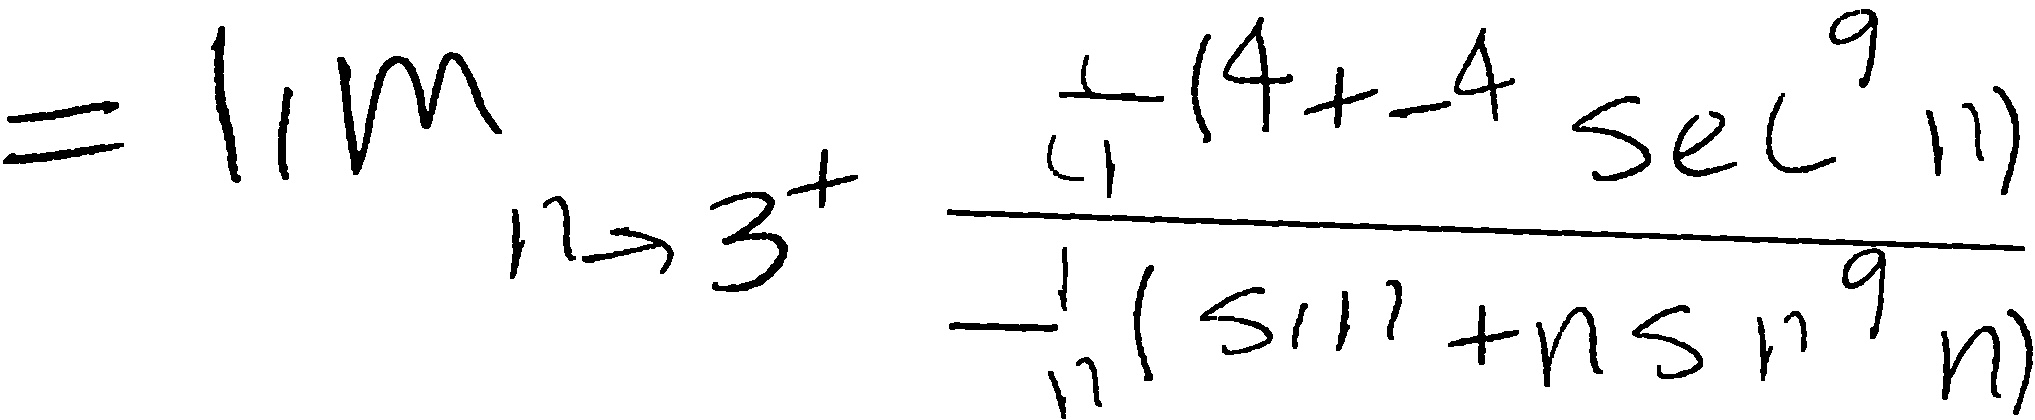 = \lim_{n \to 3^+} \frac{\frac{d}{dn}(4 + -4 \sec^9 n)}{\frac{d}{dn}(\sin + n \sin^9 n)}